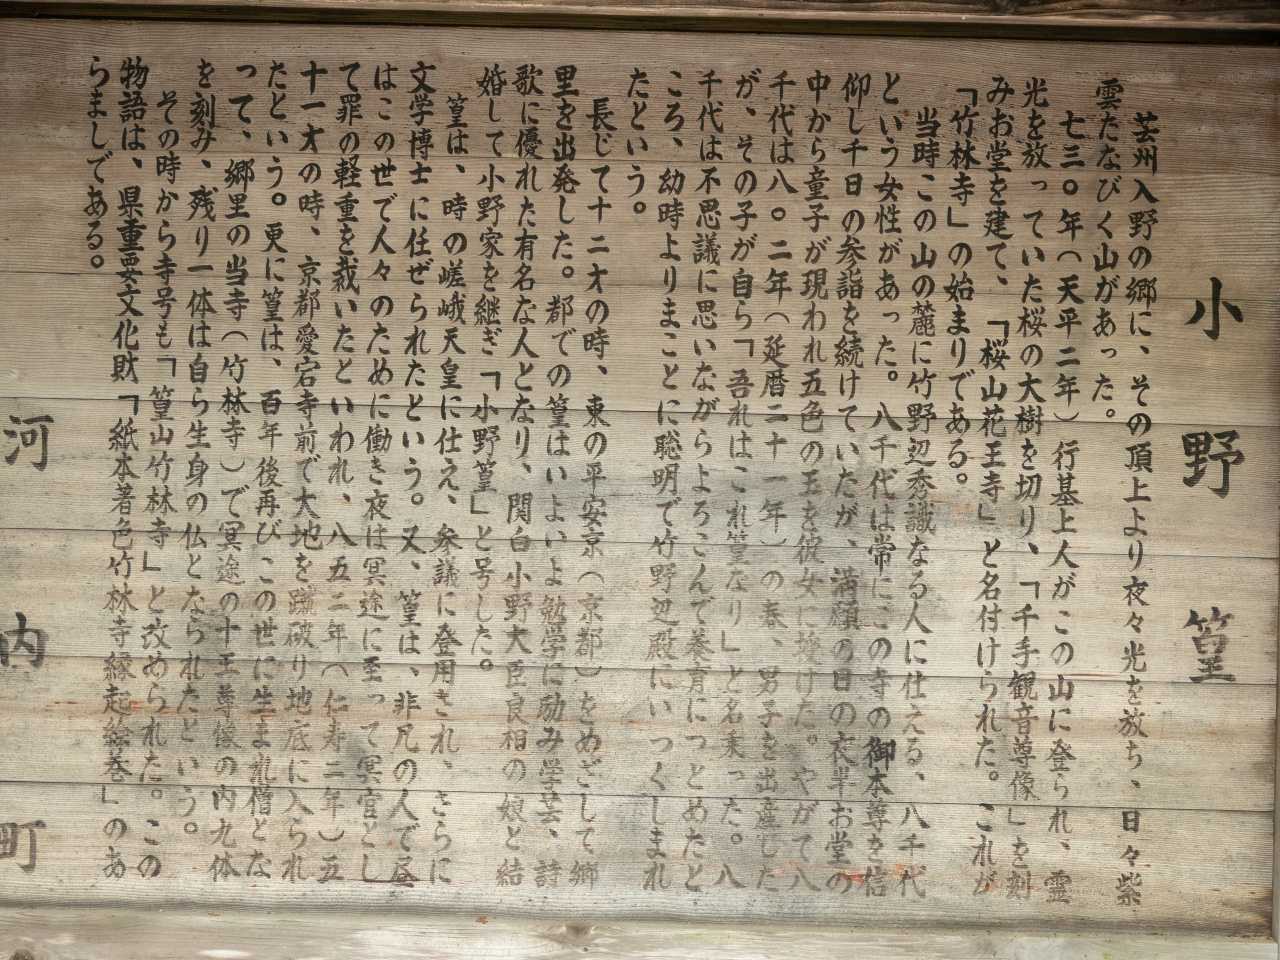 小野篁
芸州入野の郷に、その頂上より夜々光を放ち、日々紫
雲たなびく山があった。
七三〇年(天平二年)行基上人がこの山に登られ、霊
光を放っていた桜の大樹を切り、「千手観音尊像」を刻
みお堂を建て、「桜山花王寺」と名付けられた。これが
「竹林寺」の始まりである。
当時この山の麓に竹野辺秀識なる人に仕える、八千代
という女性があった。八千代は常にこの寺の御本尊を信
仰し千日の参詣を続けていたが、満願の日の夜半お堂の
中から童子が現われ五色の玉を彼女に授けた。やがて八
千代は八〇二年(延暦二十一年)の春、男子を出産した
が、その子が自ら「吾れはこれ篁なり」と名乗った。八
千代は不思議に思いながらよろこんで養育につとめたと
ころ、幼時よりまことに聡明で竹野辺殿にいつくしまれ
たという。
長じて十二才の時、東の平安京(京都)をめざして郷
里を出発した。都での篁はいよいよ勉学に励み学芸、詩
歌に優れた有名な人となり、関白小野大臣良相の娘と結
婚して小野家を継ぎ「小野篁」と号した。
篁は、時の嵯峨天皇に仕え、参議に登用され、さらに
文学博士に任ぜられたという。又、篁は、非凡の人で昼
はこの世で人々のために働き夜は冥途に至って冥官とし
て罪の軽重を裁いたといわれ、八五二年(仁寿二年)五
十一才の時、京都愛宕寺前で大地を蹴破り地底に入られ
たという。更に篁は、百年後再びこの世に生まれ僧とな
って、郷里の当寺(竹林寺)で冥途の十王尊像の内九体
を刻み、残り一体は自ら生身の仏となられたという。
その時から寺号も「篁山竹林寺」と改められた。この
物語は、県重要文化財「紙本著色竹林寺縁起絵巻」のあ
らましである。
河内町